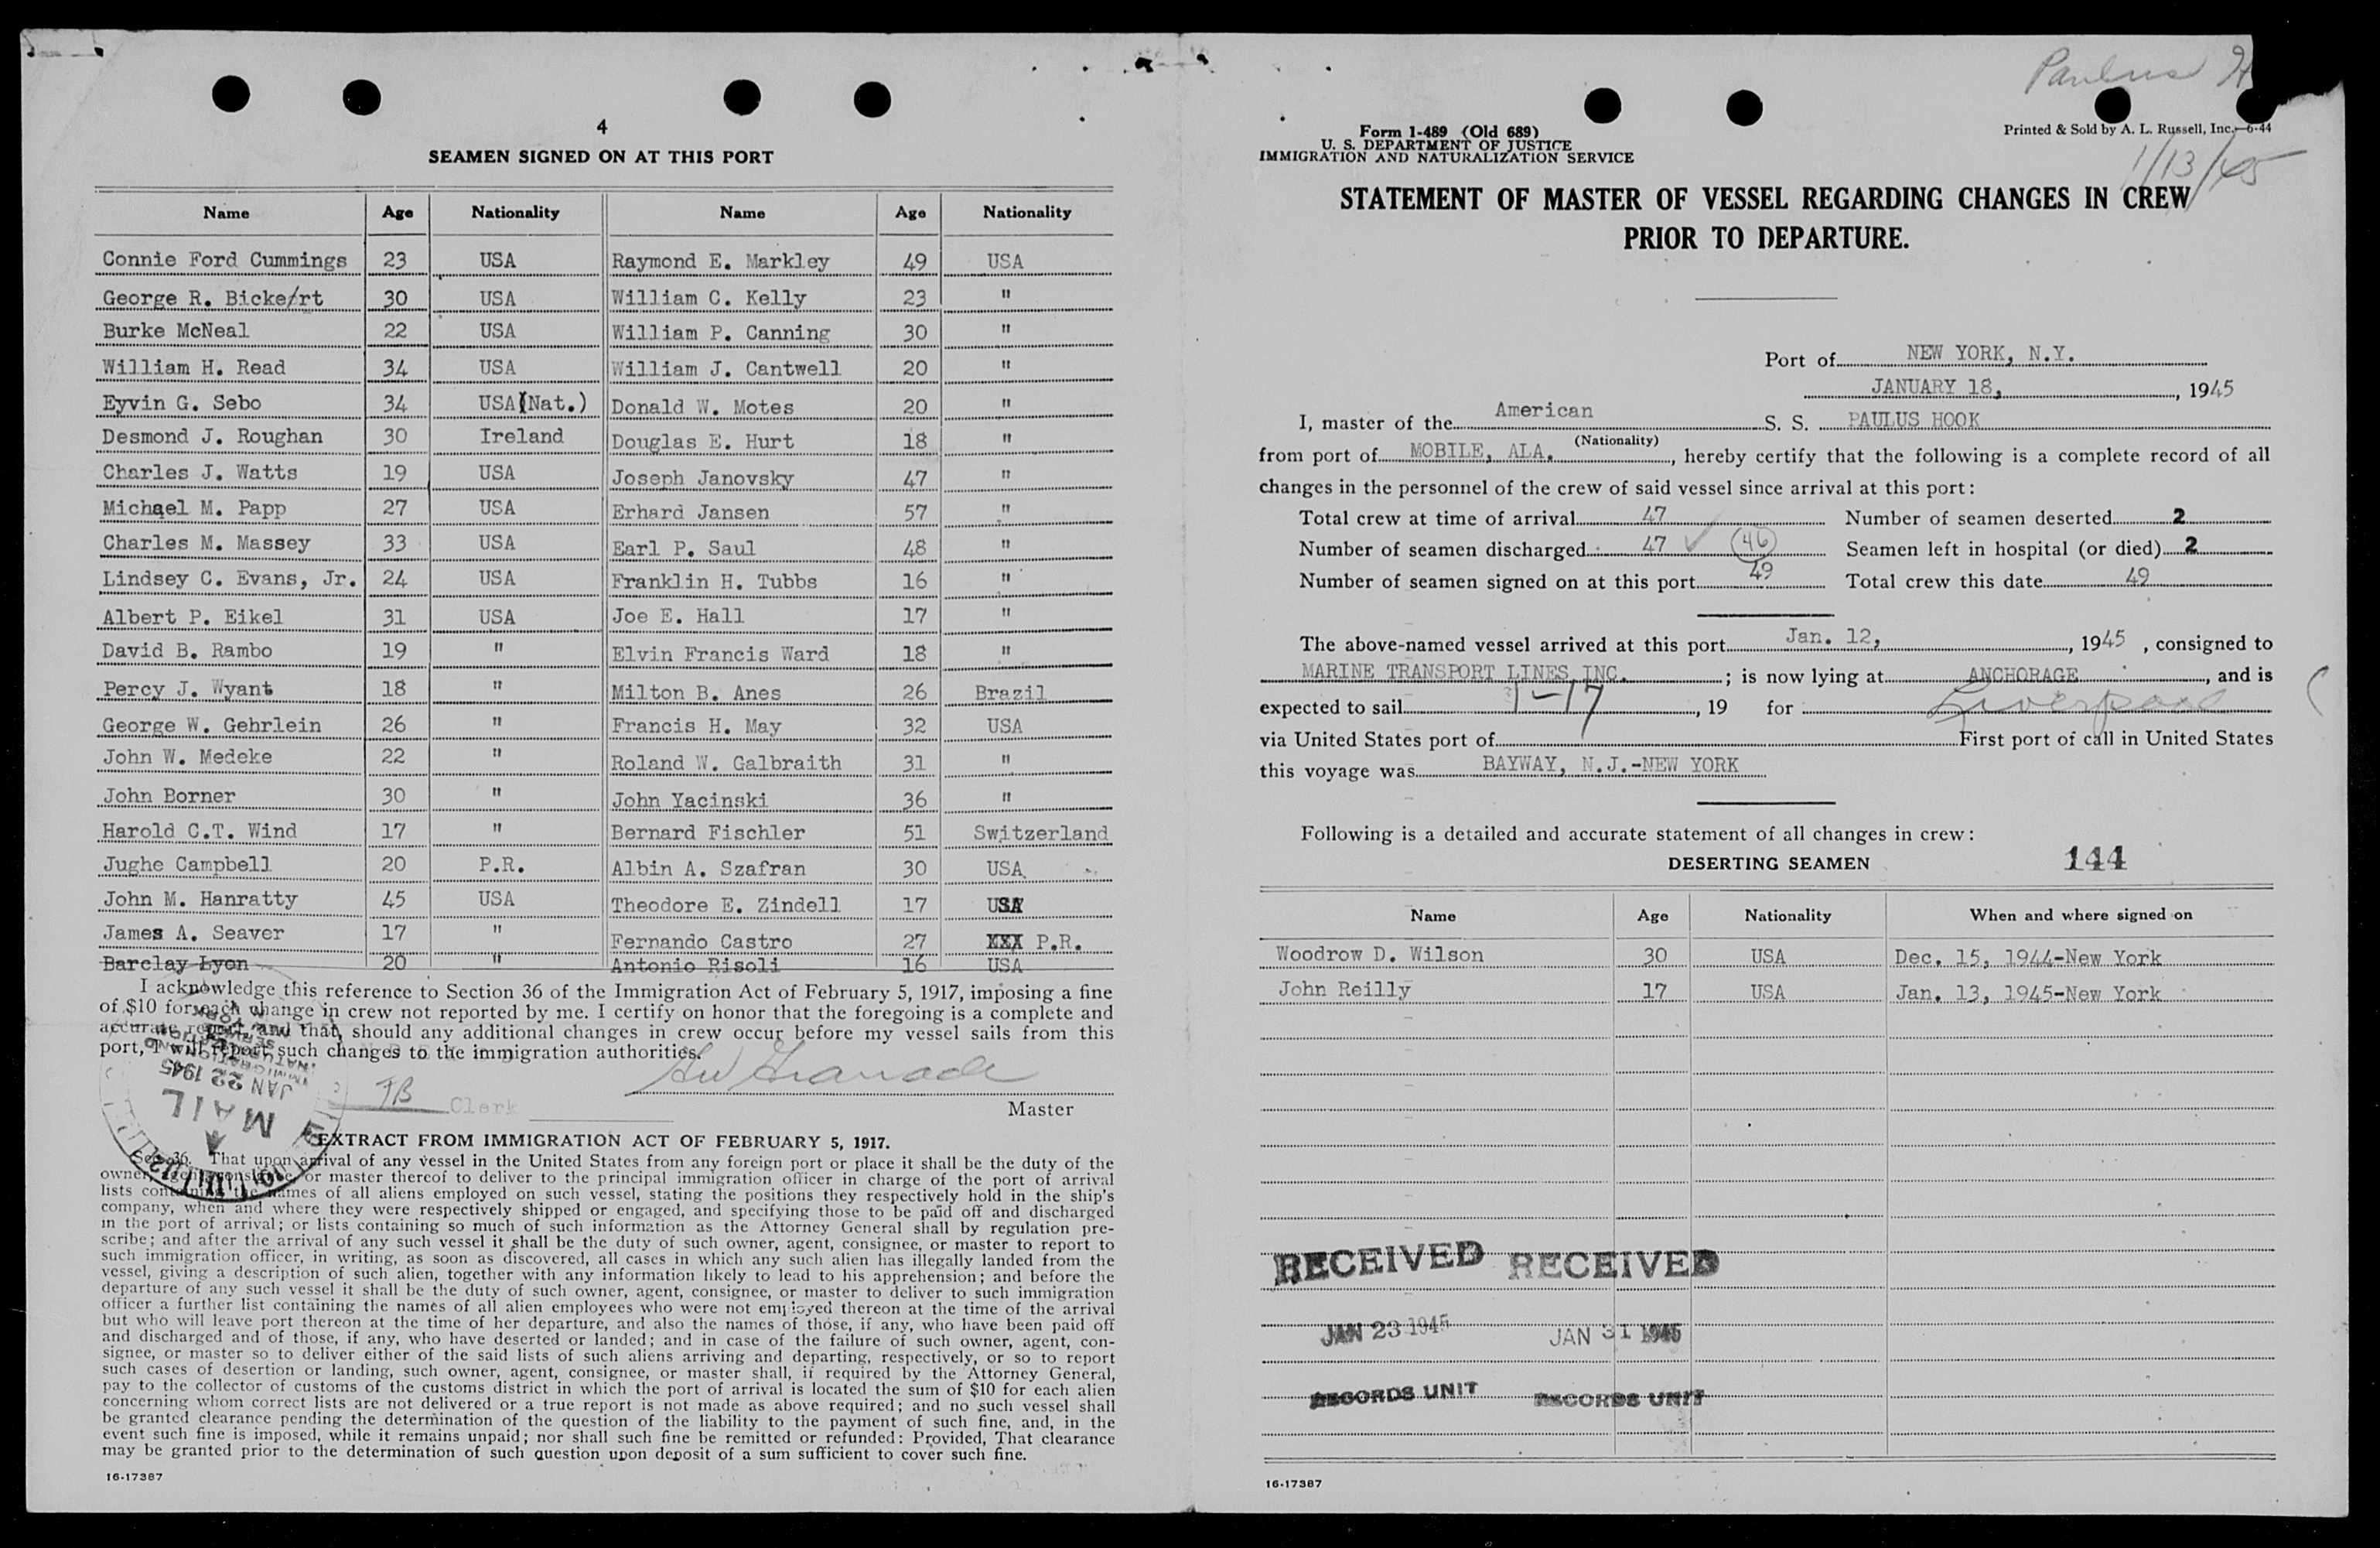 4
SEAMEN SIGNED ON AT THIS PORT
Name Age Nationality Name Age Nationality
Connie Ford Cummings 23 USA Raymond E. Markley 49 USA
George R. Bicke/rt 30 USA William C. Kelly 23 "
Burke McNeal 22 USA William P. Canning 30 "
William H. Read 34 USA William J. Cantwell 20 "
Eyvin G. Sebo 34 USA(Nat.) Donald W. Motes 20 "
Desmond J. Roughan 30 Ireland Douglas E. Hurt 18 "
Charles J. Watts 19 USA Joseph Janovsky 47 "
Michael M. Papp 27 USA Erhard Jansen 57 "
Charles M. Massey 33 USA Earl P. Saul 48 "
Lindsey C. Evans, Jr. 24 USA Franklin H. Tubbs 16 "
Albert P. Eikel 31 USA Joe E. Hall 17 "
David B. Rambo 19 " Elvin Francis Ward 18 "
Percy J. Wyant 18 " Milton B. Anes 26 Brazil
George W. Gehrlein 26 " Francis H. May 32 USA
John W. Medeke 22 " Roland W. Galbraith 31 "
John Borner 30 " John Yacinski 36 "
Harold C.T. Wind 17 " Bernard Fischler 51 Switzerland
Jughe Campbell 20 P.R. Albin A. Szafran 30 USA
John M. Hanratty 45 USA Theodore E. Zindell 17 USA
James A. Seaver 17 " Fernando Castro 27 XXX P.R.
Barclay Lyon 20 " Antonio Risoli 16 USA
I acknowledge this reference to Section 36 of the Immigration Act of February 5, 1917, imposing a fine
of $10 for each change in crew not reported by me. I certify on honor that the foregoing is a complete and
accurate report, and that, should any additional changes in crew occur before my vessel sails from this
port, I will report such changes to the immigration authorities.
JAN 22 1945
MAIL
JB Clerk
Master
EXTRACT FROM IMMIGRATION ACT OF FEBRUARY 5, 1917.
Sec. 36. That upon arrival of any vessel in the United States from any foreign port or place it shall be the duty of the
owner, agent, consignee, or master thereof to deliver to the principal immigration officer in charge of the port of arrival
lists containing the names of all aliens employed on such vessel, stating the positions they respectively hold in the ship's
company, when and where they were respectively shipped or engaged, and specifying those to be paid off and discharged
in the port of arrival; or lists containing so much of such information as the Attorney General shall by regulation pre-
scribe; and after the arrival of any such vessel it shall be the duty of such owner, agent, consignee, or master to report to
such immigration officer, in writing, as soon as discovered, all cases in which any such alien has illegally landed from the
vessel, giving a description of such alien, together with any information likely to lead to his apprehension; and before the
departure of any such vessel it shall be the duty of such owner, agent, consignee, or master to deliver to such immigration
officer a further list containing the names of all alien employees who were not employed thereon at the time of the arrival
but who will leave port thereon at the time of her departure, and also the names of those, if any, who have been paid off
and discharged and of those, if any, who have deserted or landed; and in case of the failure of such owner, agent, con-
signee, or master so to deliver either of the said lists of such aliens arriving and departing, respectively, or so to report
such cases of desertion or landing, such owner, agent, consignee, or master shall, if required by the Attorney General,
pay to the collector of customs of the customs district in which the port of arrival is located the sum of $10 for each alien
concerning whom correct lists are not delivered or a true report is not made as above required; and no such vessel shall
be granted clearance pending the determination of the question of the liability to the payment of such fine, and, in the
event such fine is imposed, while it remains unpaid; nor shall such fine be remitted or refunded: Provided, That clearance
may be granted prior to the determination of such question upon deposit of a sum sufficient to cover such fine.
16-17387
Paulus H
Form 1-489 (Old 689)
U. S. DEPARTMENT OF JUSTICE
IMMIGRATION AND NATURALIZATION SERVICE
Printed & Sold by A. L. Russell, Inc.—6-44
1/13/45
STATEMENT OF MASTER OF VESSEL REGARDING CHANGES IN CREW
PRIOR TO DEPARTURE.
Port of NEW YORK, N.Y.
JANUARY 18, , 1945
I, master of the American S. S. PAULUS HOOK
(Nationality)
from port of MOBILE, ALA. , hereby certify that the following is a complete record of all
changes in the personnel of the crew of said vessel since arrival at this port:
Total crew at time of arrival 47 Number of seamen deserted 2
Number of seamen discharged 47 ✓ (46) Seamen left in hospital (or died) 2
Number of seamen signed on at this port 49 Total crew this date 49
The above-named vessel arrived at this port Jan. 12, , 1945 , consigned to
MARINE TRANSPORT LINES, INC. ; is now lying at ANCHORAGE , and is
expected to sail 1-17 , 19 for Liverpool
via United States port of First port of call in United States
this voyage was BAYWAY, N.J.-NEW YORK
Following is a detailed and accurate statement of all changes in crew:
DESERTING SEAMEN 144
Name Age Nationality When and where signed on
Woodrow D. Wilson 30 USA Dec. 15, 1944-New York
John Reilly 17 USA Jan. 13, 1945-New York
RECEIVED RECEIVED
JAN 23 1945 JAN 31 1945
RECORDS UNIT RECORDS UNIT
16-17387